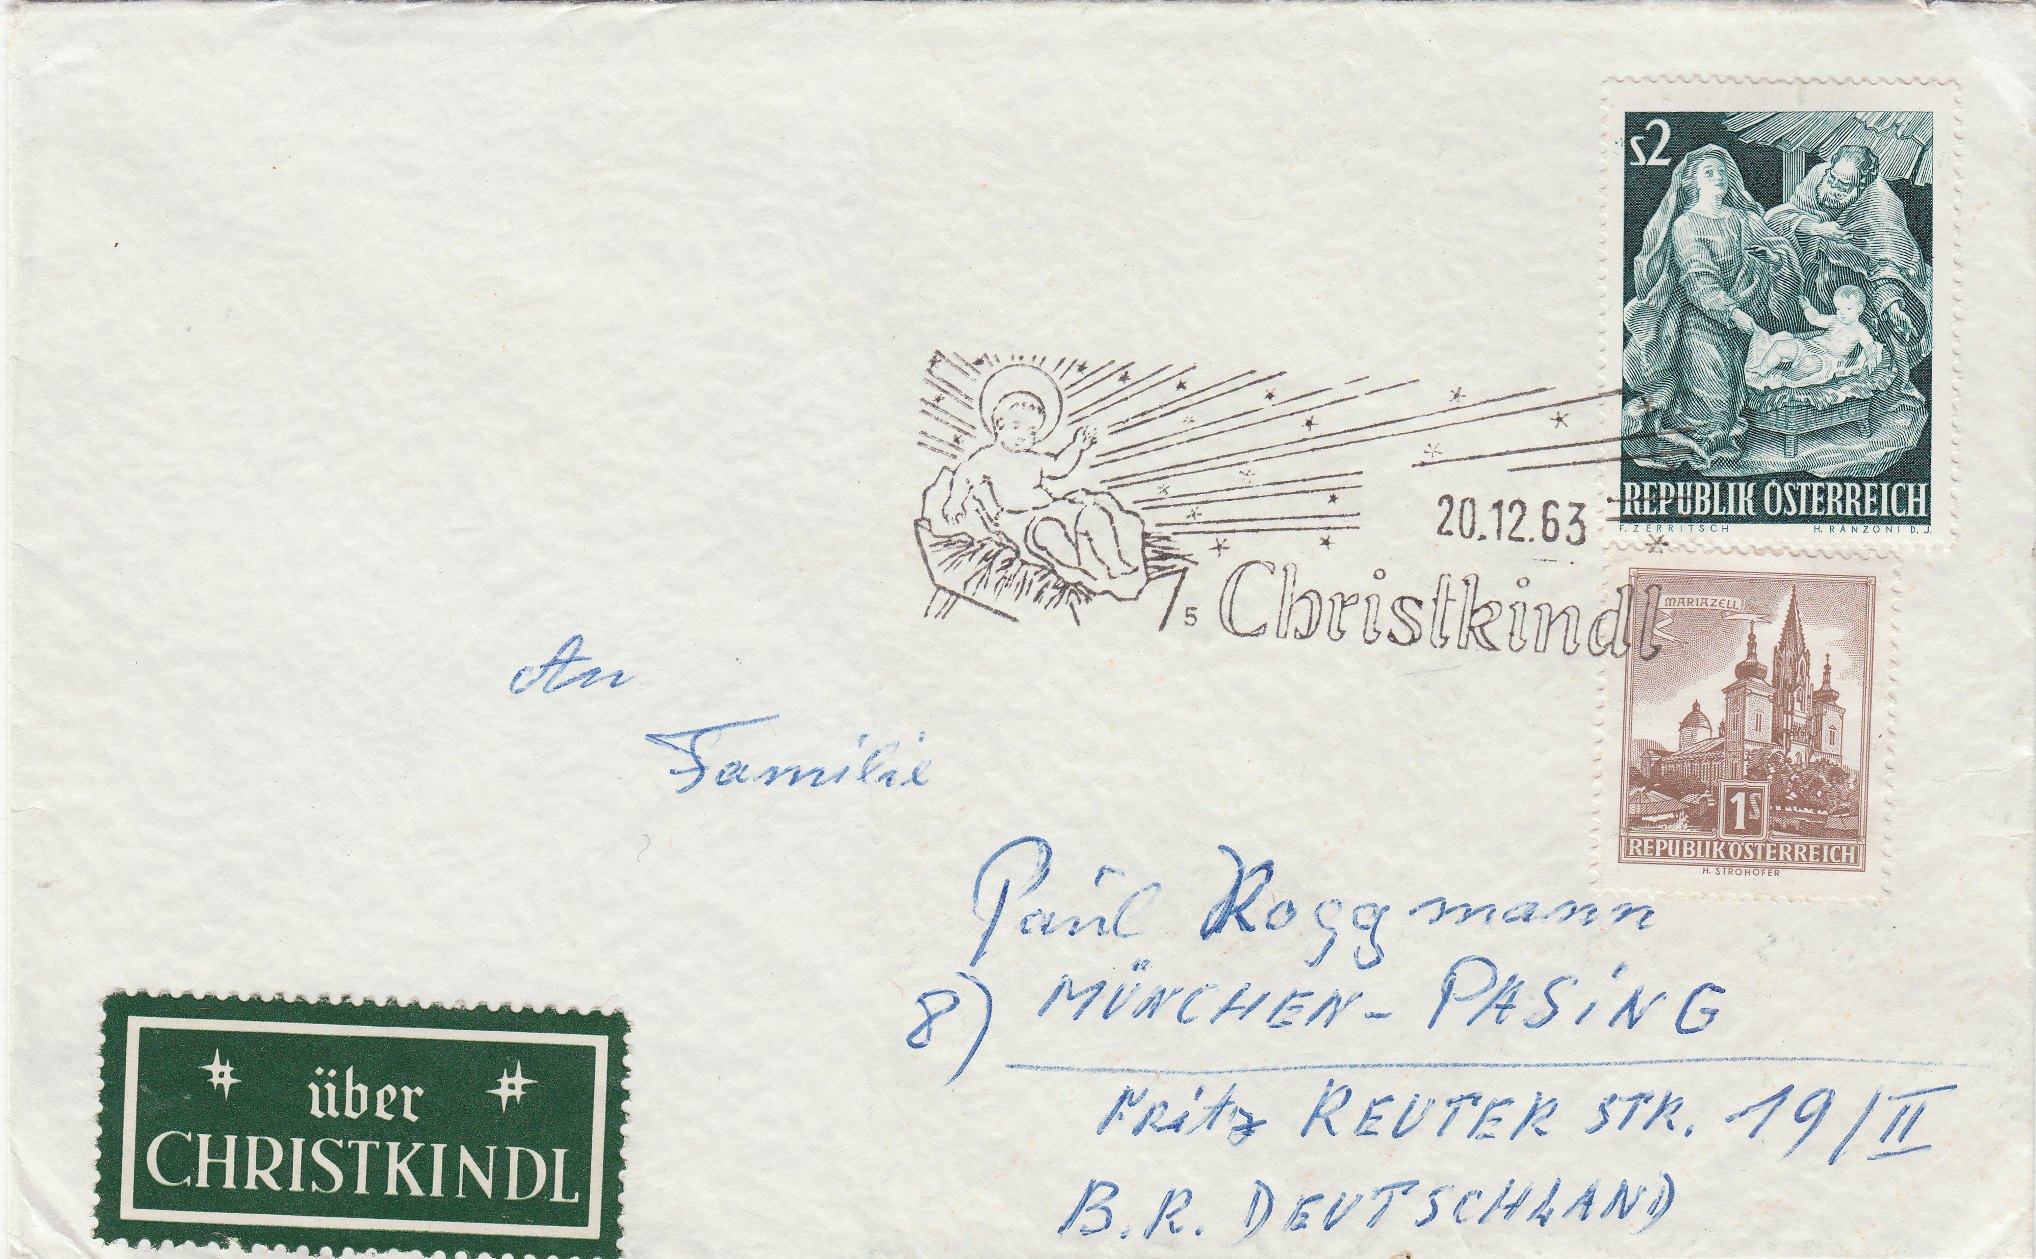 S2
REPUBLIK ÖSTERREICH
F. ZERRITSCH H. RANZONI D. J.
20.12.63
5 Christkindl
MARIAZELL
1S
REPUBLIK ÖSTERREICH
H. STROHOFER
An
Familie
Paul Roggmann
8) MÜNCHEN-PASiNG
Fritz REUTER STR. 19/II
B.R. DEUTSCHLAND
über
CHRISTKINDL